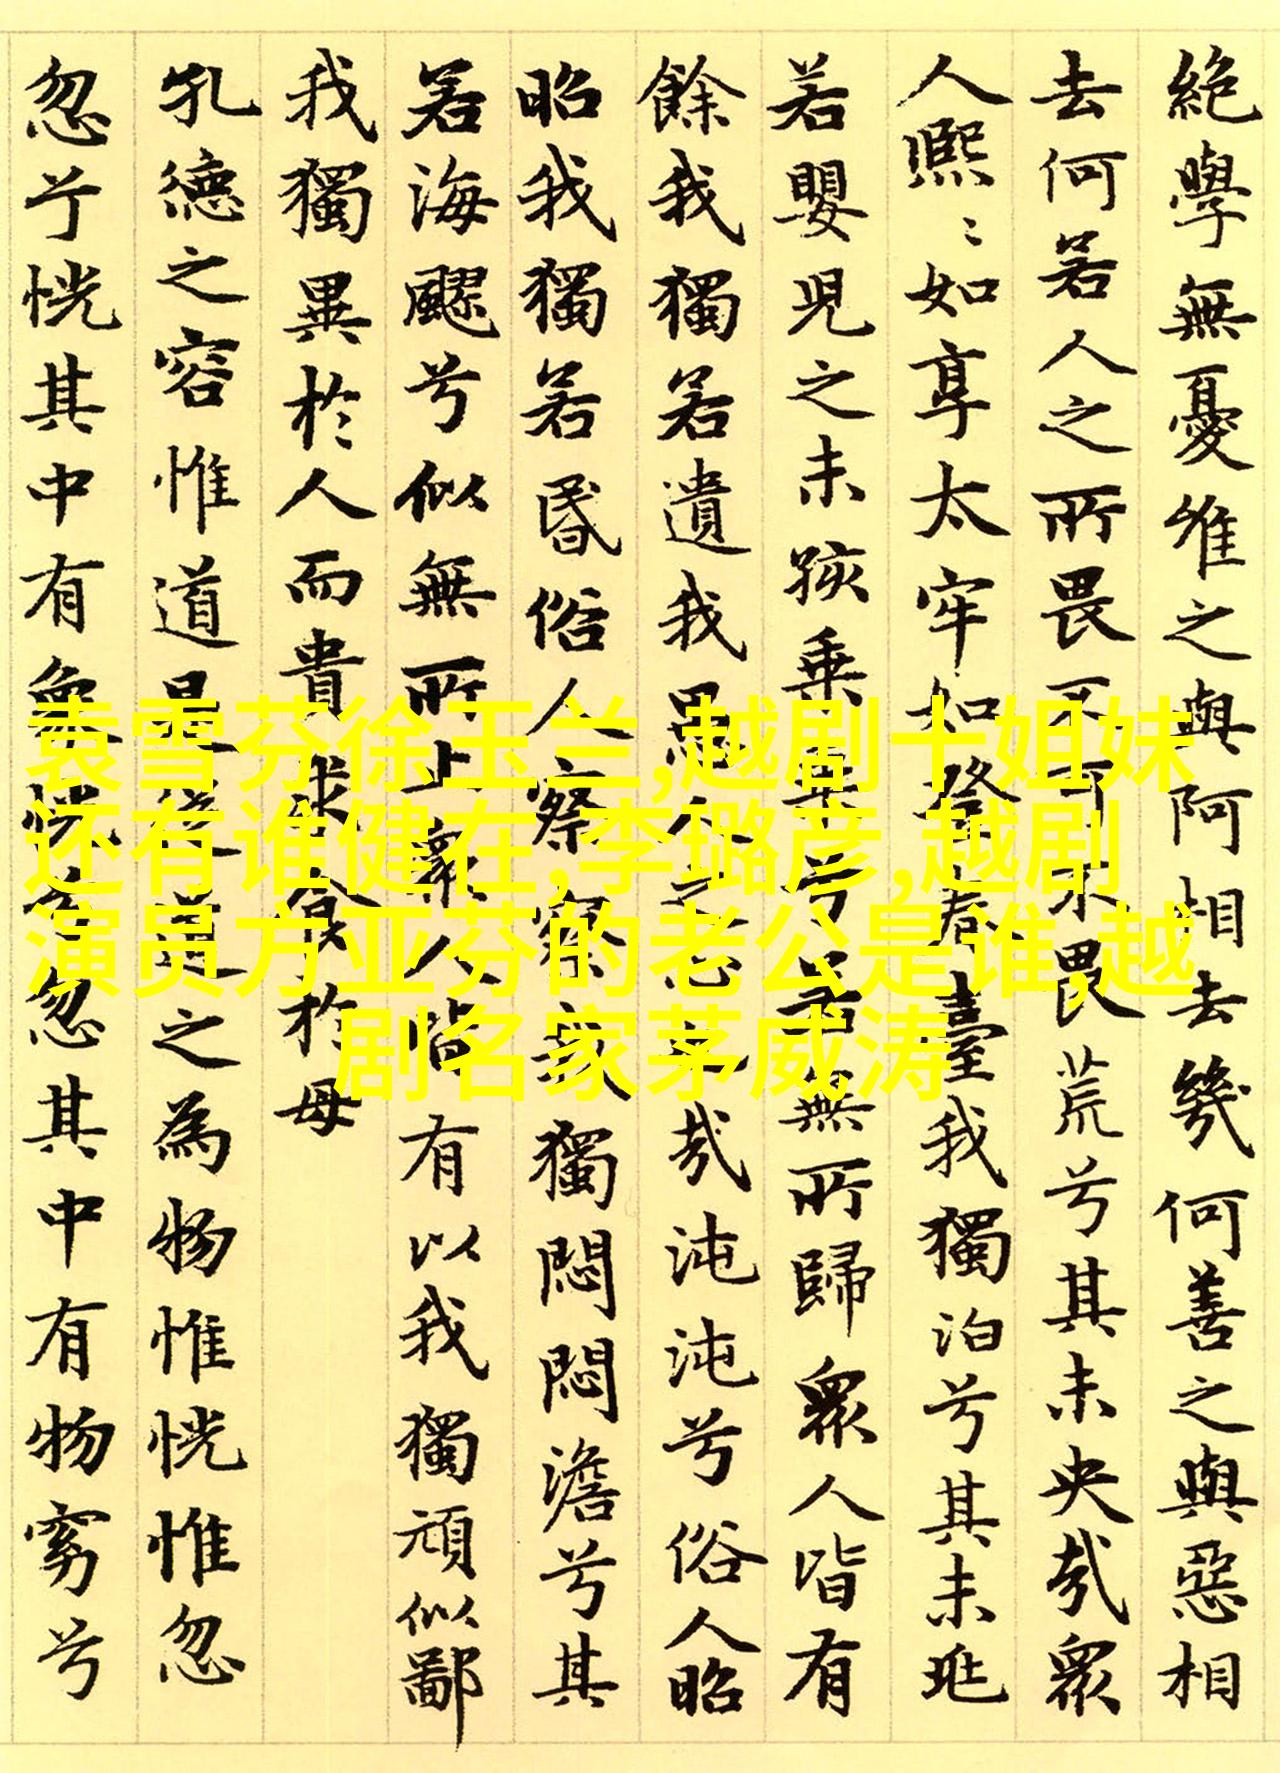 絶學無憂唯之與阿相去幾何善之與惡相
去何若人之所畏不可不畏荒兮其未央哉衆
人熈〻如享太牢如登春臺我獨泊兮其未兆
若嬰兒之未孩乗乗兮若無所歸衆人皆有
餘我獨若遺我愚人之心也哉沌沌兮俗人昭
昭我獨若昬俗人察察我獨悶悶澹兮其
若海飂兮似無所止衆人皆有以我獨頑似鄙
我獨異於人而貴求食於母
孔德之容惟道是從道之為物惟恍惟忽
忽兮恍其中有象恍兮忽其中有物窈兮
袁雪芬徐玉兰,越剧十姐妹
还有谁健在,李璐彦,越剧
演员方亚芬的老公是谁,越
剧名家茅威涛